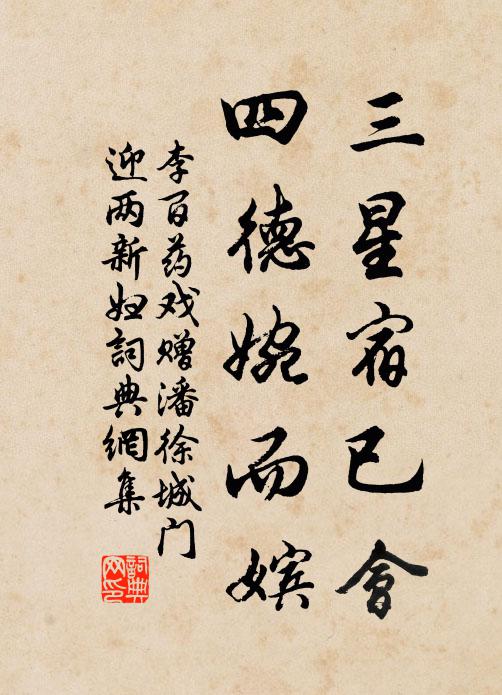 三星宿已會
四德婉而嫔
李百药戏赠潘徐城门
迎两新妇詞典網集
詞典网印